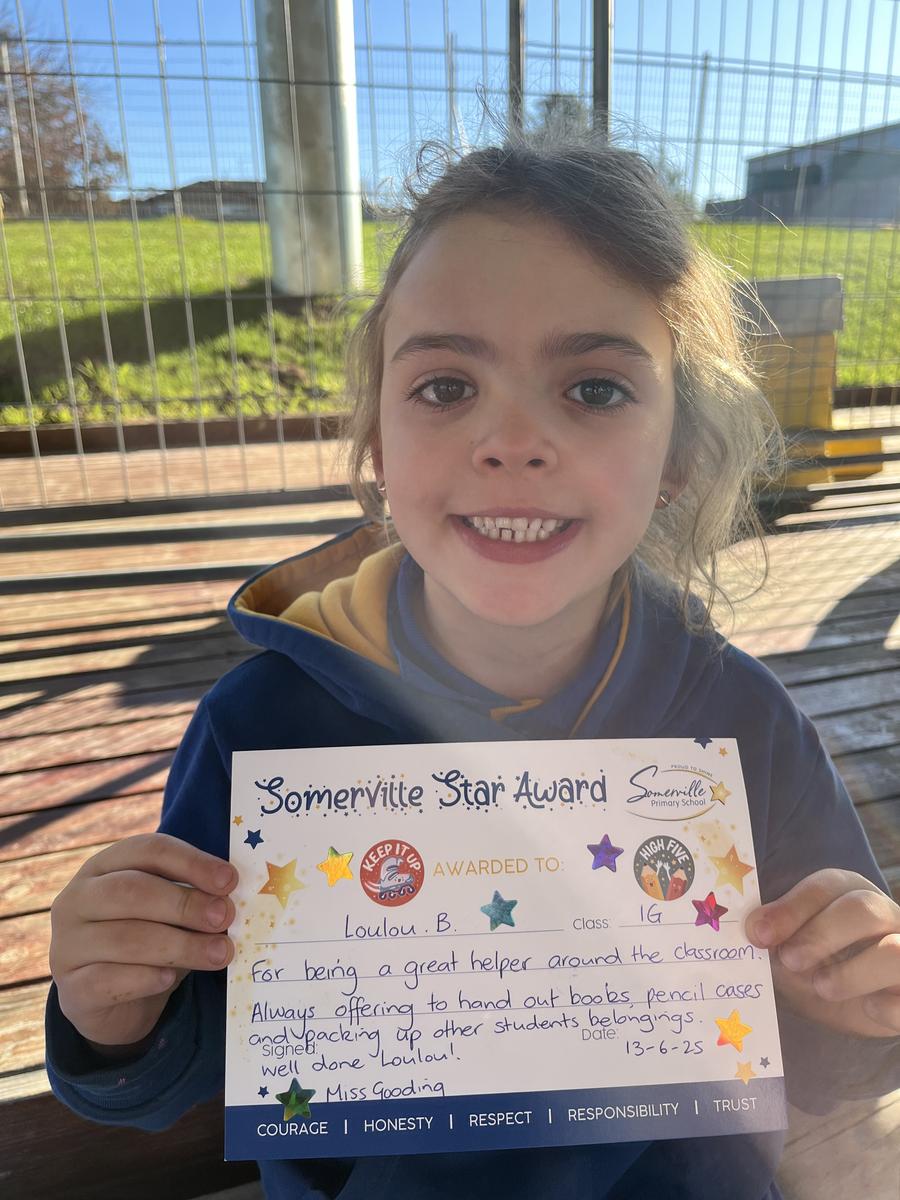 Somerville Star Award
PROUD TO SHINE
Somerville
Primary School
KEEP IT UP
AWARDED TO:
HIGH FIVE
Loulou . B. Class: 1G
For being a great helper around the classroom.
Always offering to hand out books, pencil cases
and packing up other students belongings.
Signed: Date:
well done Loulou! 13-6-25
Miss Gooding
COURAGE | HONESTY | RESPECT | RESPONSIBILITY | TRUST